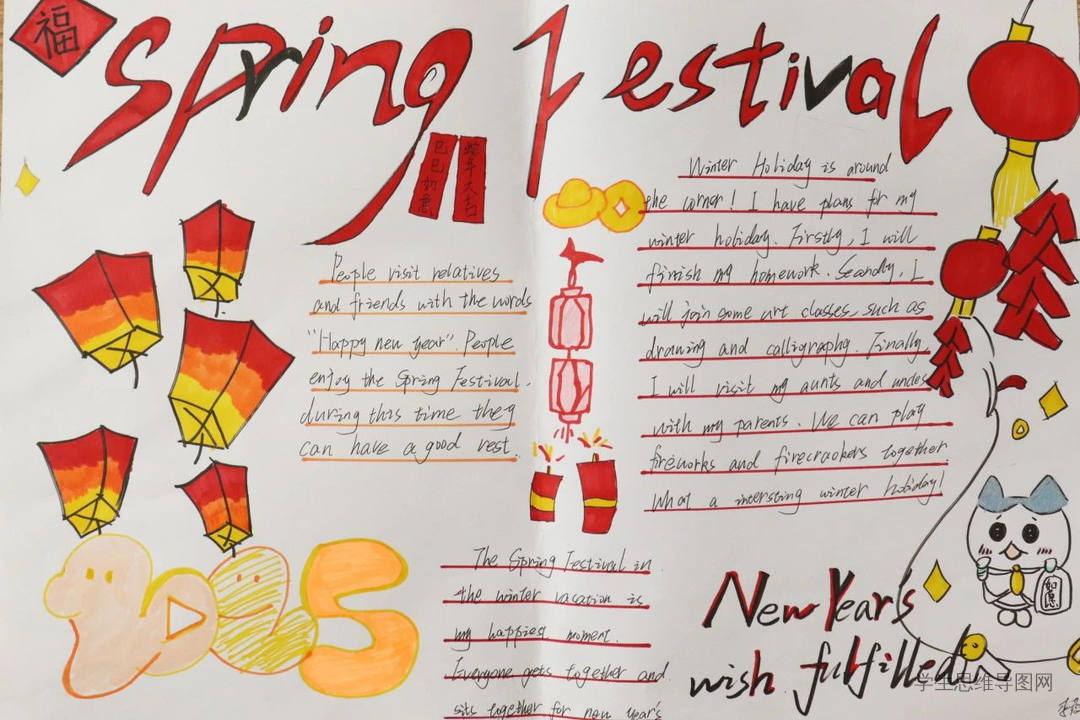 福
Spring Festival
蛇年大吉
巳巳如意
People visit relatives
and friends with the words
"Happy new year". People
enjoy the Spring Festival.
during this time they
can have a good rest.
Winter Holiday is around
the corner! I have plans for my
winter holiday. Firstly, I will
finish my homework. Seandly, I
will join some art classes, such as
drawing and calligraphy. Finally,
I will visit my aunts and uncles
with my parents. We can play
fireworks and firecrackers together
What a intersting winter holiday!
2025
The Spring Festival in
the winter vacation is
my happiest moment.
Everyone gets together and
sits together for new year's
如意
New Year's
wish fulfilled
学生思维导图网